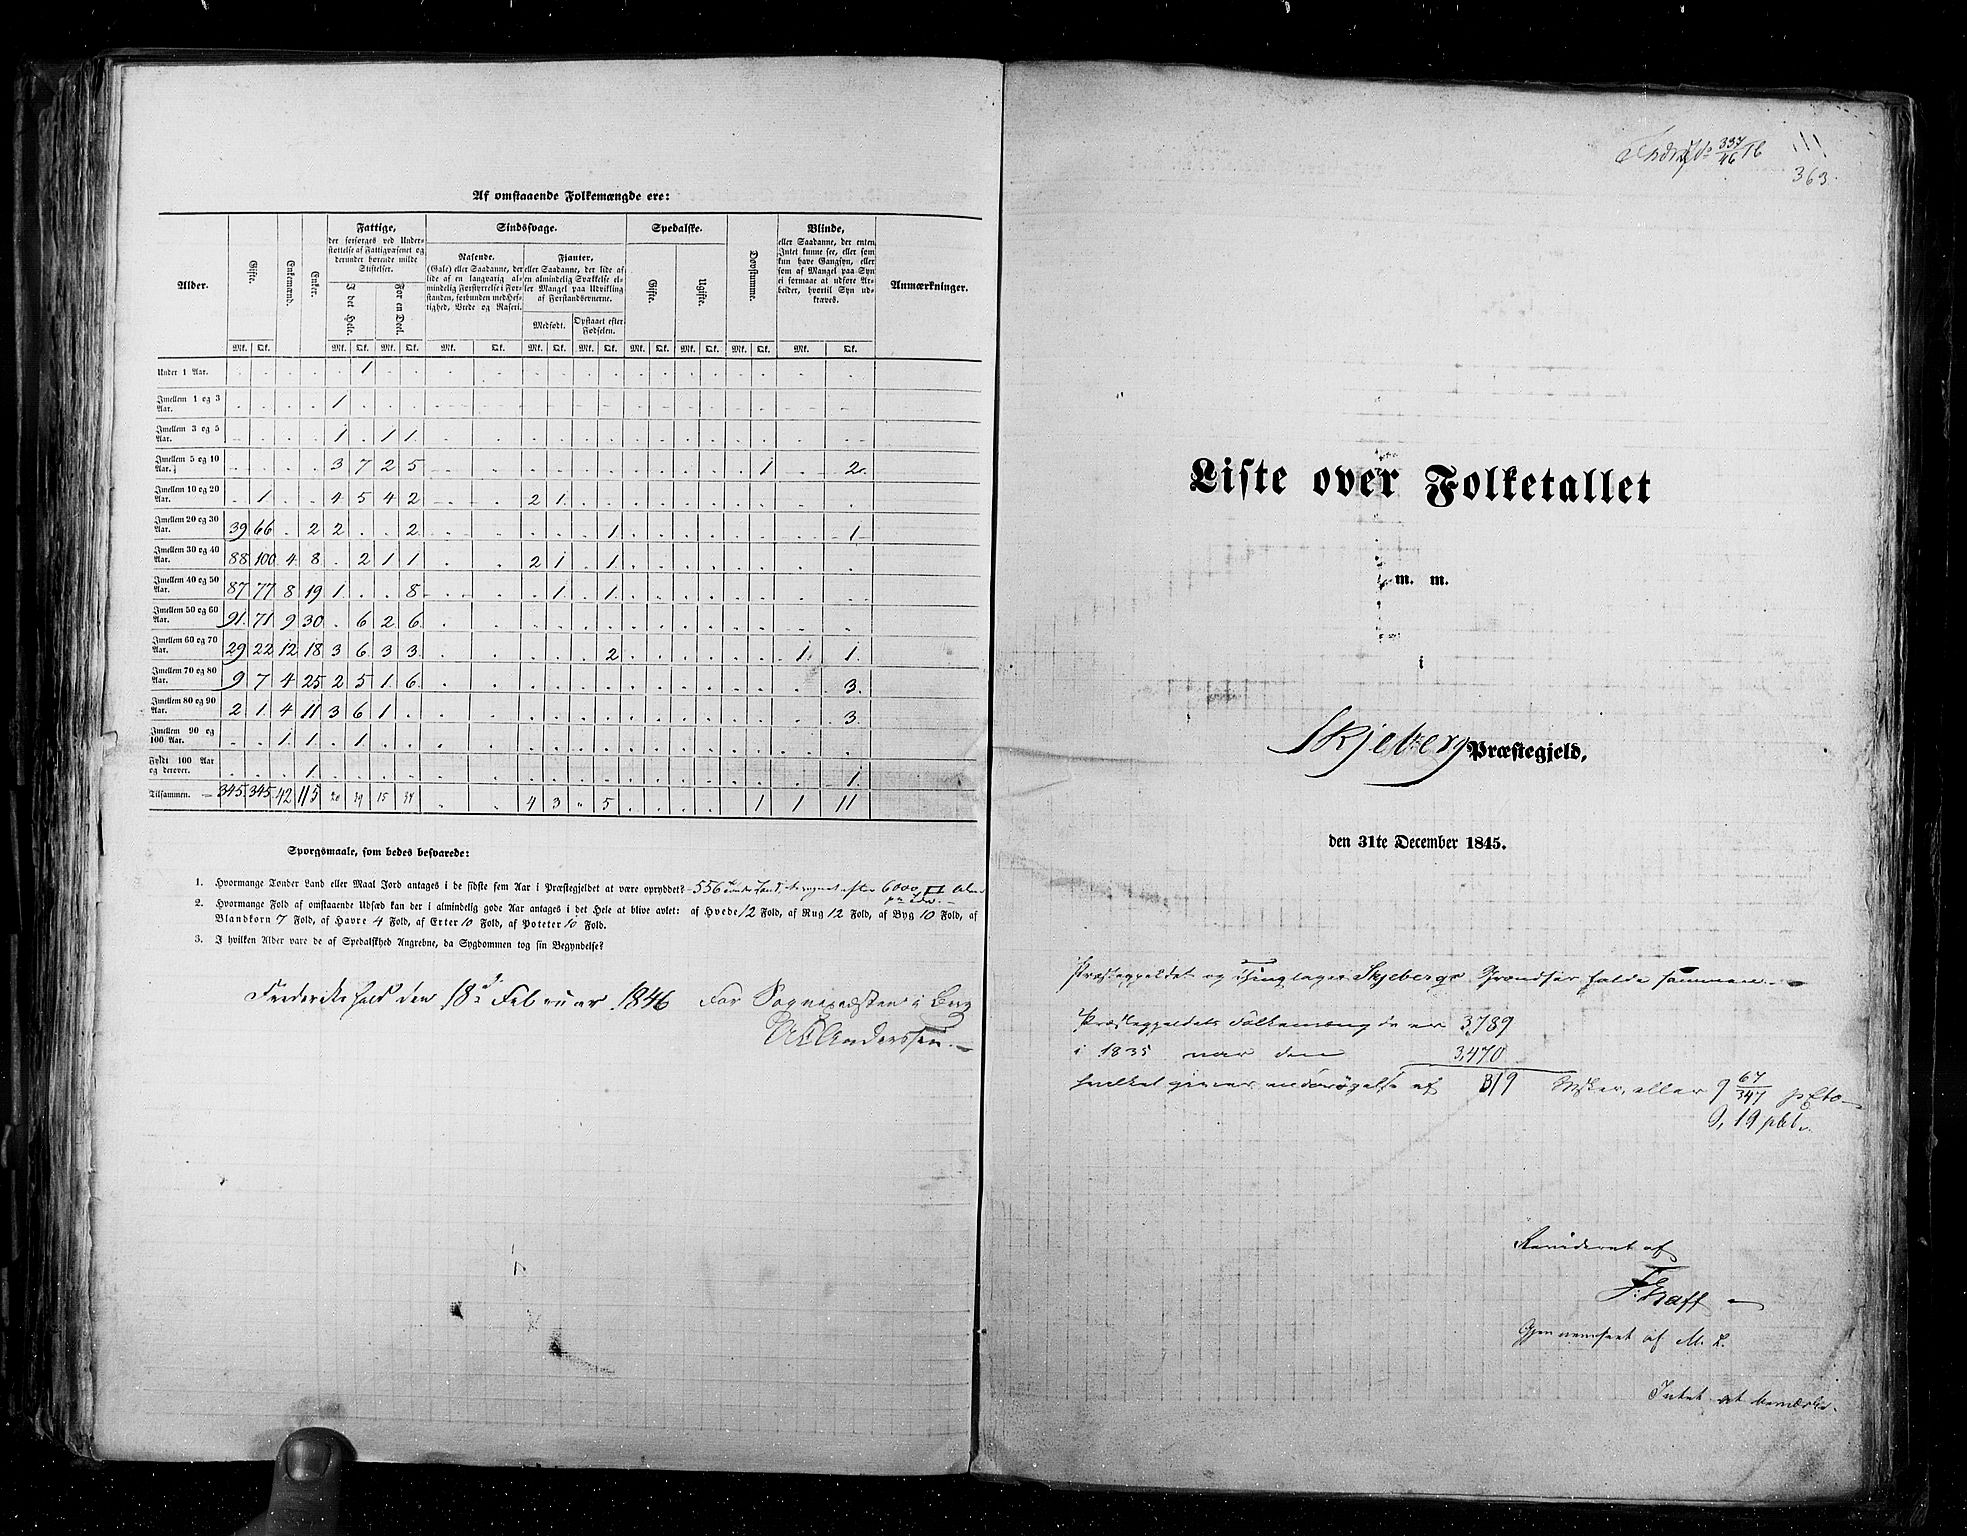 Af omstaaende Folkemængde ere:
Alder. Gifte. Enkemænd. Enker. Fattige, der forsørges ved Understøttelse af Fattigvæsenet og derunder hørende milde Stiftelser. Sindssvage. Spedalske. Døvstumme. Blinde, eller Saadanne, der enten Intet kunne see, eller som kun have Gangsyn, eller som af Mangel paa Syn ei formaae at udføre Arbeider, hvortil Syn udkræves. Anmærkninger.
I det Hele. For en Deel. Rasende. (Gale) eller Saadanne, der lide af en langvarig almindelig Forstyrrelse i Forstanden, forbunden med Heftighed, Vrede og Raseri. Fianter, eller Saadanne, der lide af en almindelig Svækkelse eller Mangel paa Udvikling af Forstandsevnerne. Gifte. Ugifte.
Medfødt. Opstaaet efter Fødselen.
Mk. Qk. Mk. Qk. Mk. Qk. Mk. Qk. Mk. Qk. Mk. Qk. Mk. Qk. Mk. Qk. Mk. Qk. Mk. Qk.
Under 1 Aar. . . . . . 1 . . . . . . . . . . . . . . . .
Imellem 1 og 3 Aar. . . . . 1 . . . . . . . . . . . . . . . . .
Imellem 3 og 5 Aar. . . . . 1 . 1 1 . . . . . . . . . . . . . .
Imellem 5 og 10 Aar. . . . . 3 7 2 5 . . . . . . . . . . . 1 . 2.
Imellem 10 og 20 Aar. . 1 . . 4 5 4 2 . . 2 1 . . . . . . . . . .
Imellem 20 og 30 Aar. 39 66 . 2 2 . . 2 . . . . . 1 . . . . . . . 1
Imellem 30 og 40 Aar. 88 100 4 8 . 2 1 1 . . 2 1 . 1 . . . . . . . .
Imellem 40 og 50 Aar. 87 77 8 19 1 . . 8 . . . 1 . 1 . . . . . . . .
Imellem 50 og 60 Aar. 91 71 9 30 . 6 2 6 . . . . . . . . . . . . . .
Imellem 60 og 70 Aar. 29 22 12 18 3 6 3 3 . . . . . 2 . . . . . . 1 1
Imellem 70 og 80 Aar. 9 7 4 25 2 5 1 6 . . . . . . . . . . . . . 3.
Imellem 80 og 90 Aar. 2 1 4 11 3 6 1 . . . . . . . . . . . . . . 3.
Imellem 90 og 100 Aar. . . 1 1 . 1 . . . . . . . . . . . . . . . .
Fyldt 100 Aar og derover. . . . 1 . . . . . . . . . . . . . . . . . 1.
Tilsammen. 345 345 42 115 20 39 15 34 . . 4 3 " 5 . . . . . 1 1 11
Spørgsmaale, som bedes besvarede:
1. Hvormange Tønder Land eller Maal Jord antages i de sidste fem Aar i Præstegjeldet at være opryddet? 556 Tønder Land, beregnet efter 6000 □ Alen
pr. Tdr.
2. Hvormange Fold af omstaaende Udsæd kan der i almindelig gode Aar antages i det Hele at blive avlet: af Hvede 12 Fold, af Rug 12 Fold, af Byg 10 Fold, af
Blandkorn 7 Fold, af Havre 4 Fold, af Erter 10 Fold, af Poteter 10 Fold.
3. I hvilken Alder vare de af Spedalskhed Angrebne, da Sygdommen tog sin Begyndelse?
Frederikshald den 18d Februar 1846 For Sognepræsten i Berg
Anderssen.
337/46
363.
Liste over Folketallet
m. m.
i
Skjeberg Præstegjeld,
den 31te December 1845.
Præstegjeldet og Thinglaget Skjebergs Grændser falde sammen.
Præstegjeldets Folkemængde er 3789
i 1835 var den 3,470
hvilket giver en Forøgelse af 319 Msker, eller 9 67/347 pCto
9,19 pct.
Revideret af
Gjennemseet af M. L.
Intet at bemærke.